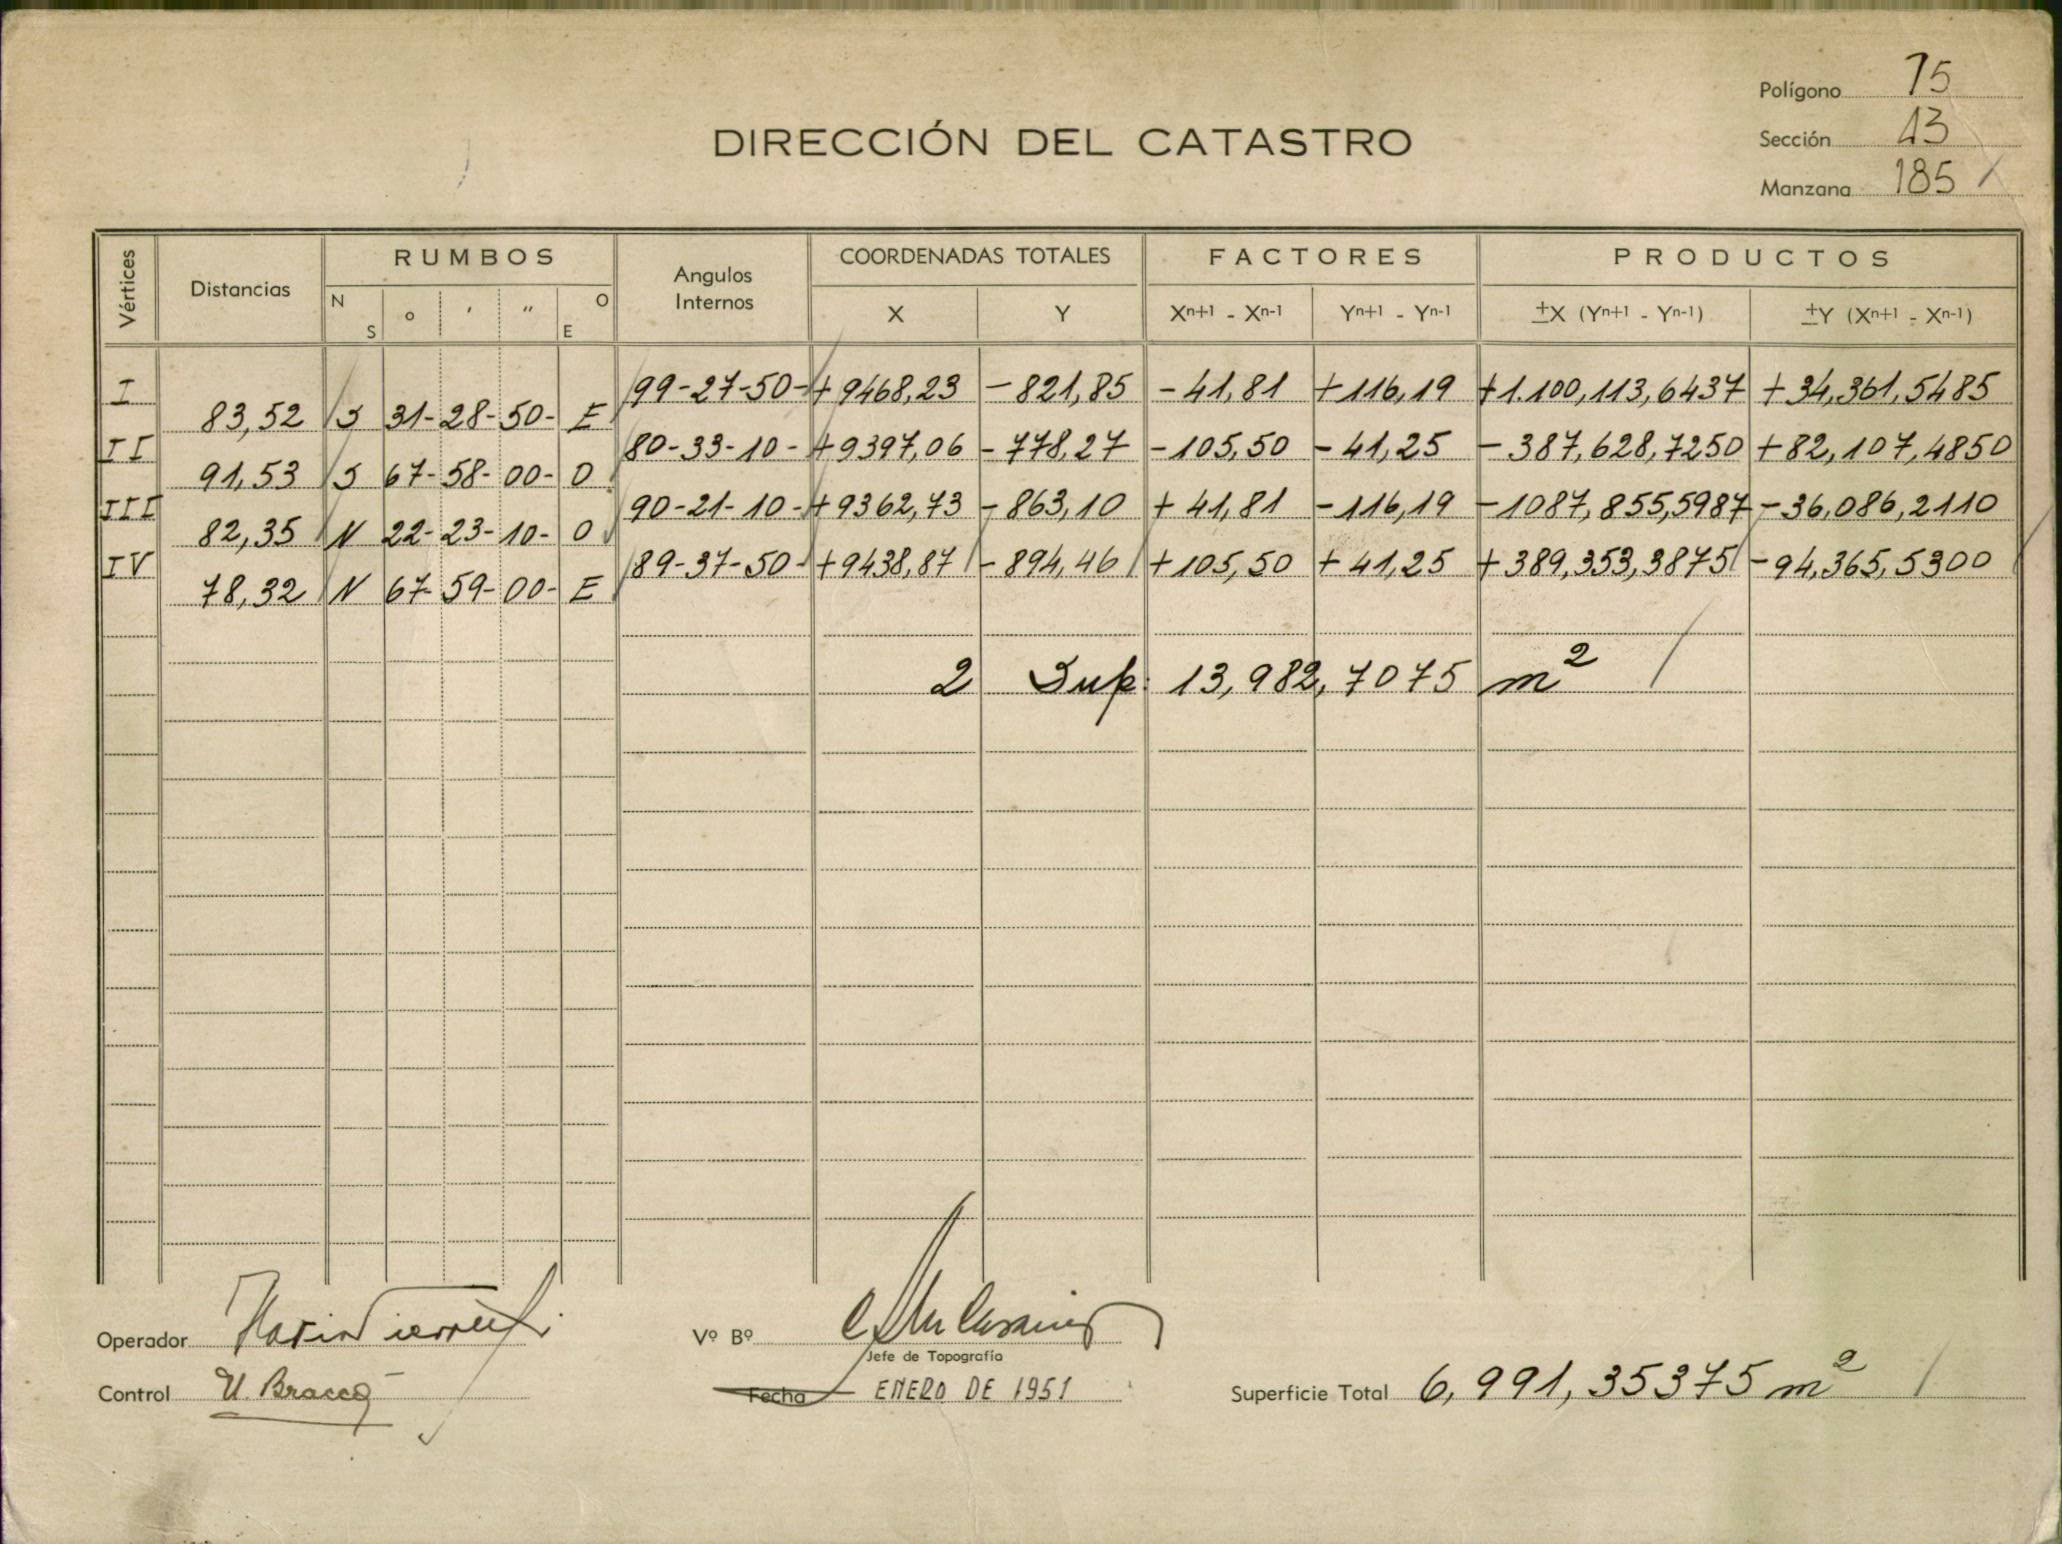 Polígono 15
Sección 13
Manzana 185
DIRECCIÓN DEL CATASTRO
Vértices Distancias RUMBOS Angulos Internos COORDENADAS TOTALES FACTORES PRODUCTOS
N S ° ' " O E X Y Xn+1 - Xn-1 Yn+1 - Yn-1 ±X (Yn+1 - Yn-1) ±Y (Xn+1 - Xn-1)
I 99-27-50- +9468,23 -821,85 -41,81 +116,19 +1.100,113,6437 +34,361,5485
83,52 S 31-28-50- E
II 80-33-10- +9397,06 -778,27 -105,50 -41,25 -387,628,7250 +82,107,4850
91,53 S 67-58-00- O
III 90-21-10- +9362,73 -863,10 +41,81 -116,19 -1087,855,5987 -36,086,2110
82,35 N 22-23-10- O
IV 89-37-50- +9438,87 -894,46 +105,50 +41,25 +389,353,3875 -94,365,5300
78,32 N 67-59-00- E
2 Sup: 13,982,7075 m²
Operador
Vº Bº
Jefe de Topografía
Control U. Bracco
Fecha ENERO DE 1951
Superficie Total 6,991,35375 m²